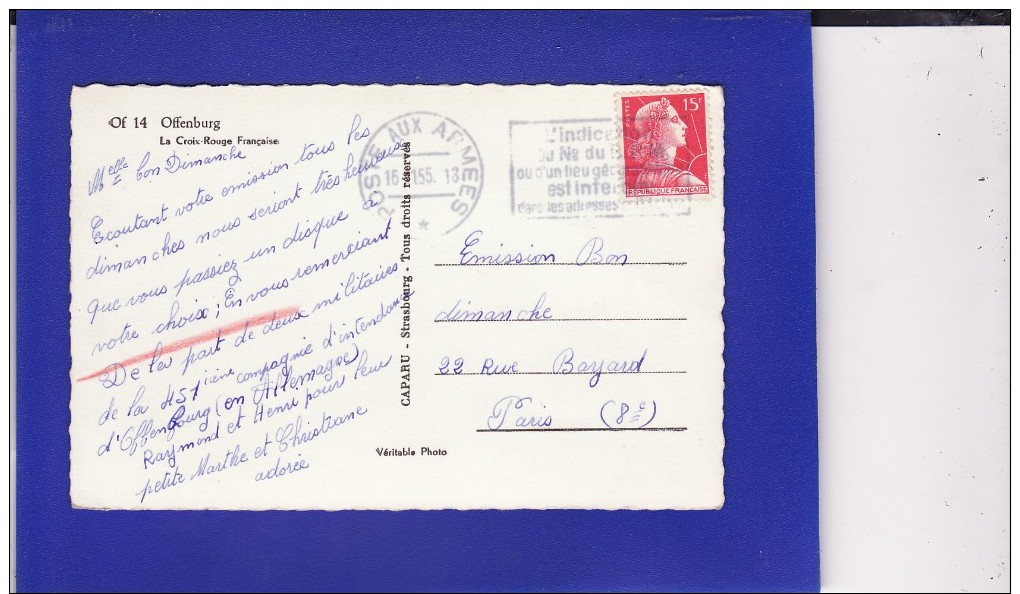 Of 14 Offenburg
La Croix-Rouge Française
Melle bon Dimanche
Ecoutant votre emission tous les
dimanches nous seriont très heureux
que vous passiez un disque a
votre choix; En vous remerciant
De la part de deux militaires
de la 451ième compagnie d'intendance
d'Offenbourg (en Allemagne)
Raymond et Henri pour leur
petite Marthe et Christiane
adorée
CAPARU - Strasbourg - Tous droits réservés
Véritable Photo
POSTE AUX ARMEES
16 1955. 13
*
L'indication
du No du B
ou d'un lieu géo
est inter
dans les adresses
POSTES
15F
REPUBLIQUE FRANÇAISE
Emission Bon
dimanche
22 Rue Bayard
Paris (8e)